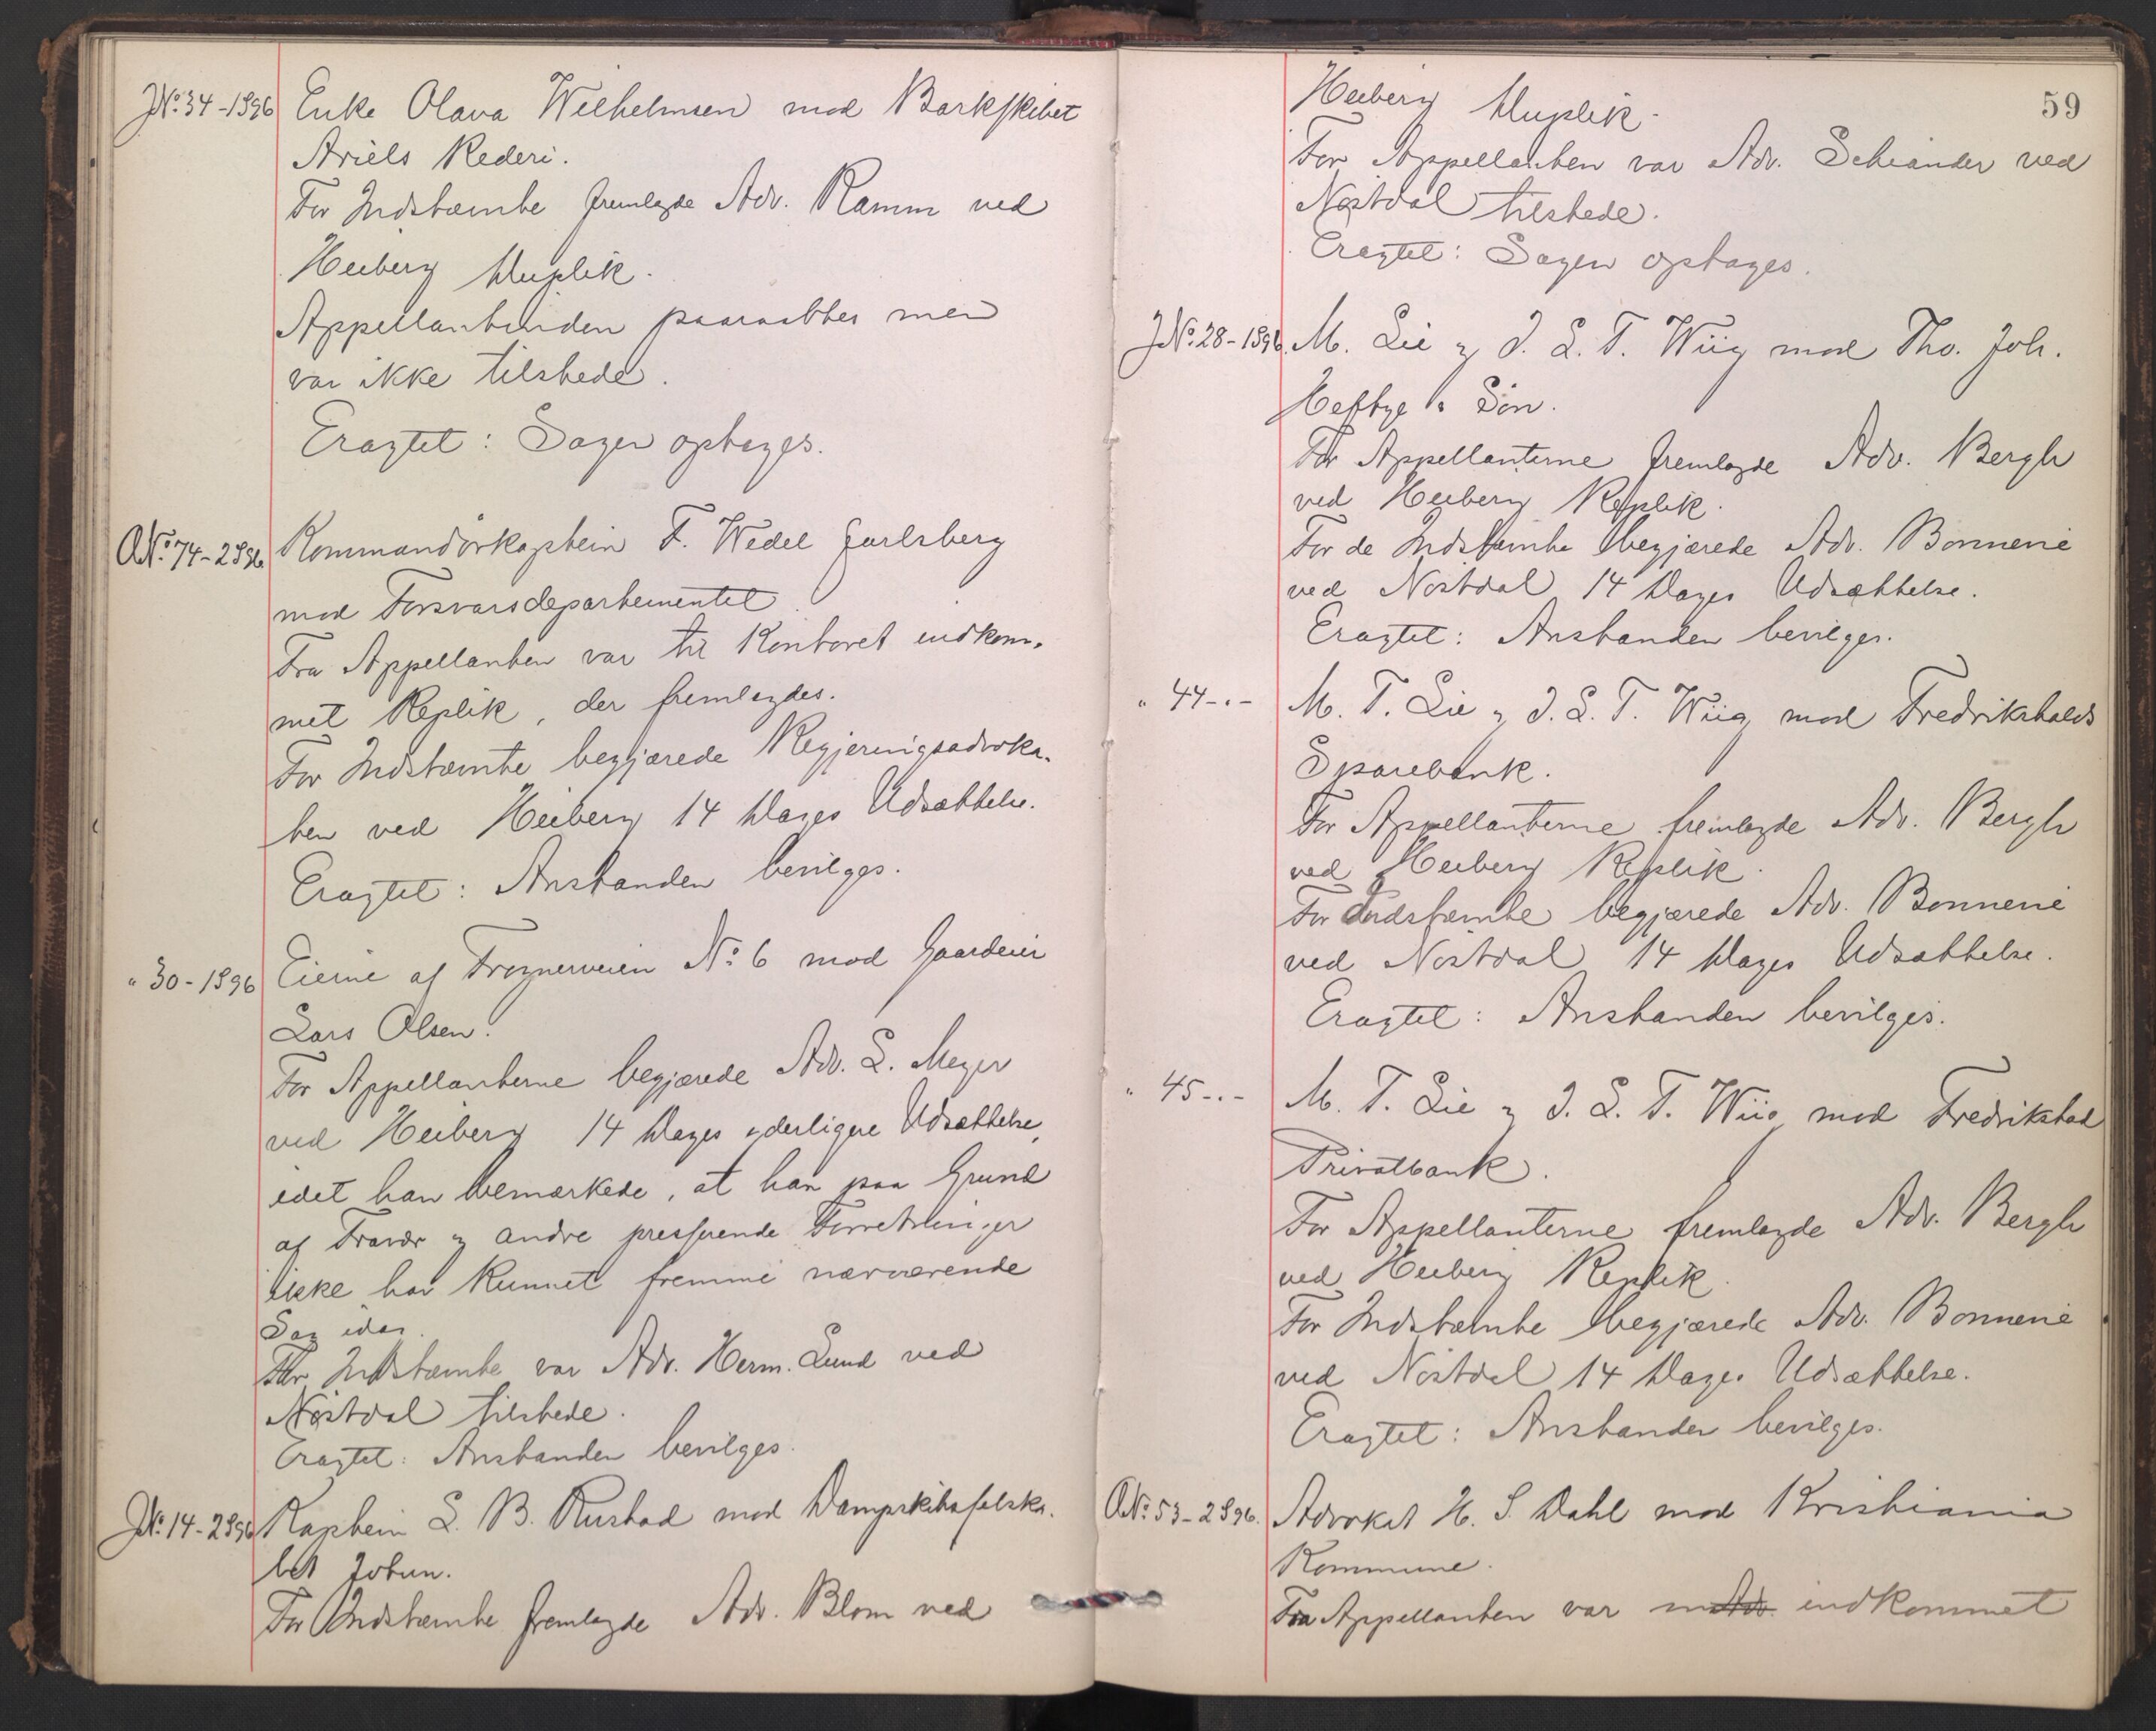 JNo. 34-1896 Enke Olava Wilhelmsen mod Barkskibet
Ariels Rederi.
For Indstævnte fremlagde Adv. Ramm ved
Heiberg Duplik.
Appellantinden paaraabtes men
var ikke tilstede.
Eragtet: Sagen optages.
ONo. 74-2 S 96. Kommandörkaptein F. Wedel Jarlsberg
mod Forsvarsdepartementet
Fra Appellanten var til Kontoret indkom-
met Replik, der fremlagdes.
For Indstævnte begjærede Regjeringsadvoka-
ten ved Heiberg 14 Dages Udsættelse.
Eragtet: Anstanden bevilges.
" 30-1896 Eierne af Frognerveien No. 6 mod Gaardeier
Lars Olsen.
For Appellanterne begjærede Adv. L. Meyer
ved Heiberg 14 Dages yderligere Udsættelse,
idet han bemærkede, at han paa Grund
af Fravær og andre presserende Forretninger
ikke har kunnet fremme nærværende
Sag idag.
For Indstævnte var Adv. Herm. Lund ved
Nöstdal tilstede.
Eragtet: Anstanden bevilges.
JNo. 14-2 S 96 Kaptein L. B. Rustad mod Dampskibsselska-
bet Jotun.
For Indstævnte fremlagde Adv. Blom ved
59
Heiberg Duplik.
For Appellanten var Adv. Schiander ved
Nöstdal tilstede.
Eragtet: Sagen optages.
JNo. 28-1896. M. Lie og J. L. T. Wiig mod Tho. Joh.
Heftye & Sön.
For Appellanterne fremlagde Adv. Bergh
ved Heiberg Replik.
For de Indstævnte begjærede Adv. Bonnevie
ved Nöstdal 14 Dages Udsættelse.
Eragtet: Anstanden bevilges.
" 44-"- M. T. Lie og J. L. T. Wiig mod Fredrikshalds
Sparebank.
For Appellanterne fremlagde Adv. Bergh
ved Heiberg Replik.
For Indstævnte begjærede Adv. Bonnevie
ved Nöstdal 14 Dages Udsættelse.
Eragtet: Anstanden bevilges.
" 45-"- M. T. Lie og J. L. T. Wiig mod Fredrikstad
Privatbank.
For Appellanterne fremlagde Adv. Bergh
ved Heiberg Replik.
For Indstævnte begjærede Adv. Bonnevie
ved Nöstdal 14 Dages Udsættelse.
Eragtet: Anstanden bevilges.
ONo. 53-2 S 96. Advokat H. S. Dahl mod Kristiania
Kommune.
Fra Appellanten var indkommet